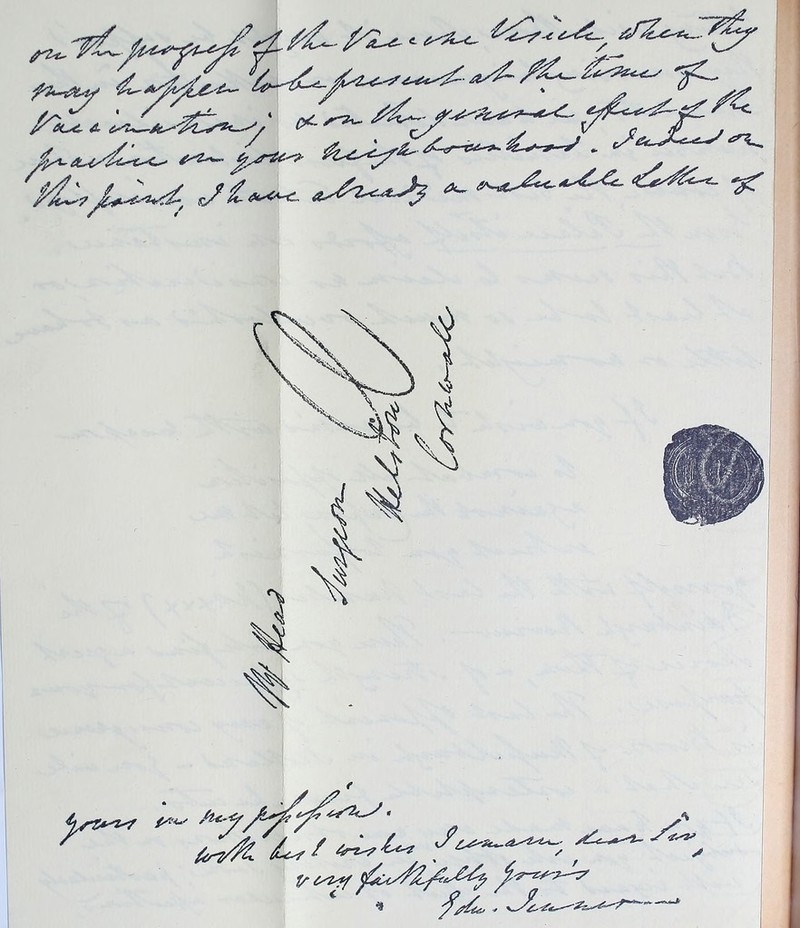 on the progress of the Vaccine Vesicle, when they
may happen to be present at the time of
Vaccination; & on the general effect of the
practice in your neighbourhood. Indeed on
this point, I have already a valuable Letter of
Mr Head
Surgeon
Helston
Cornwall
yours in my possession.
with best wishes I remain, dear Sir,
very faithfully yours
Edw. Jenner